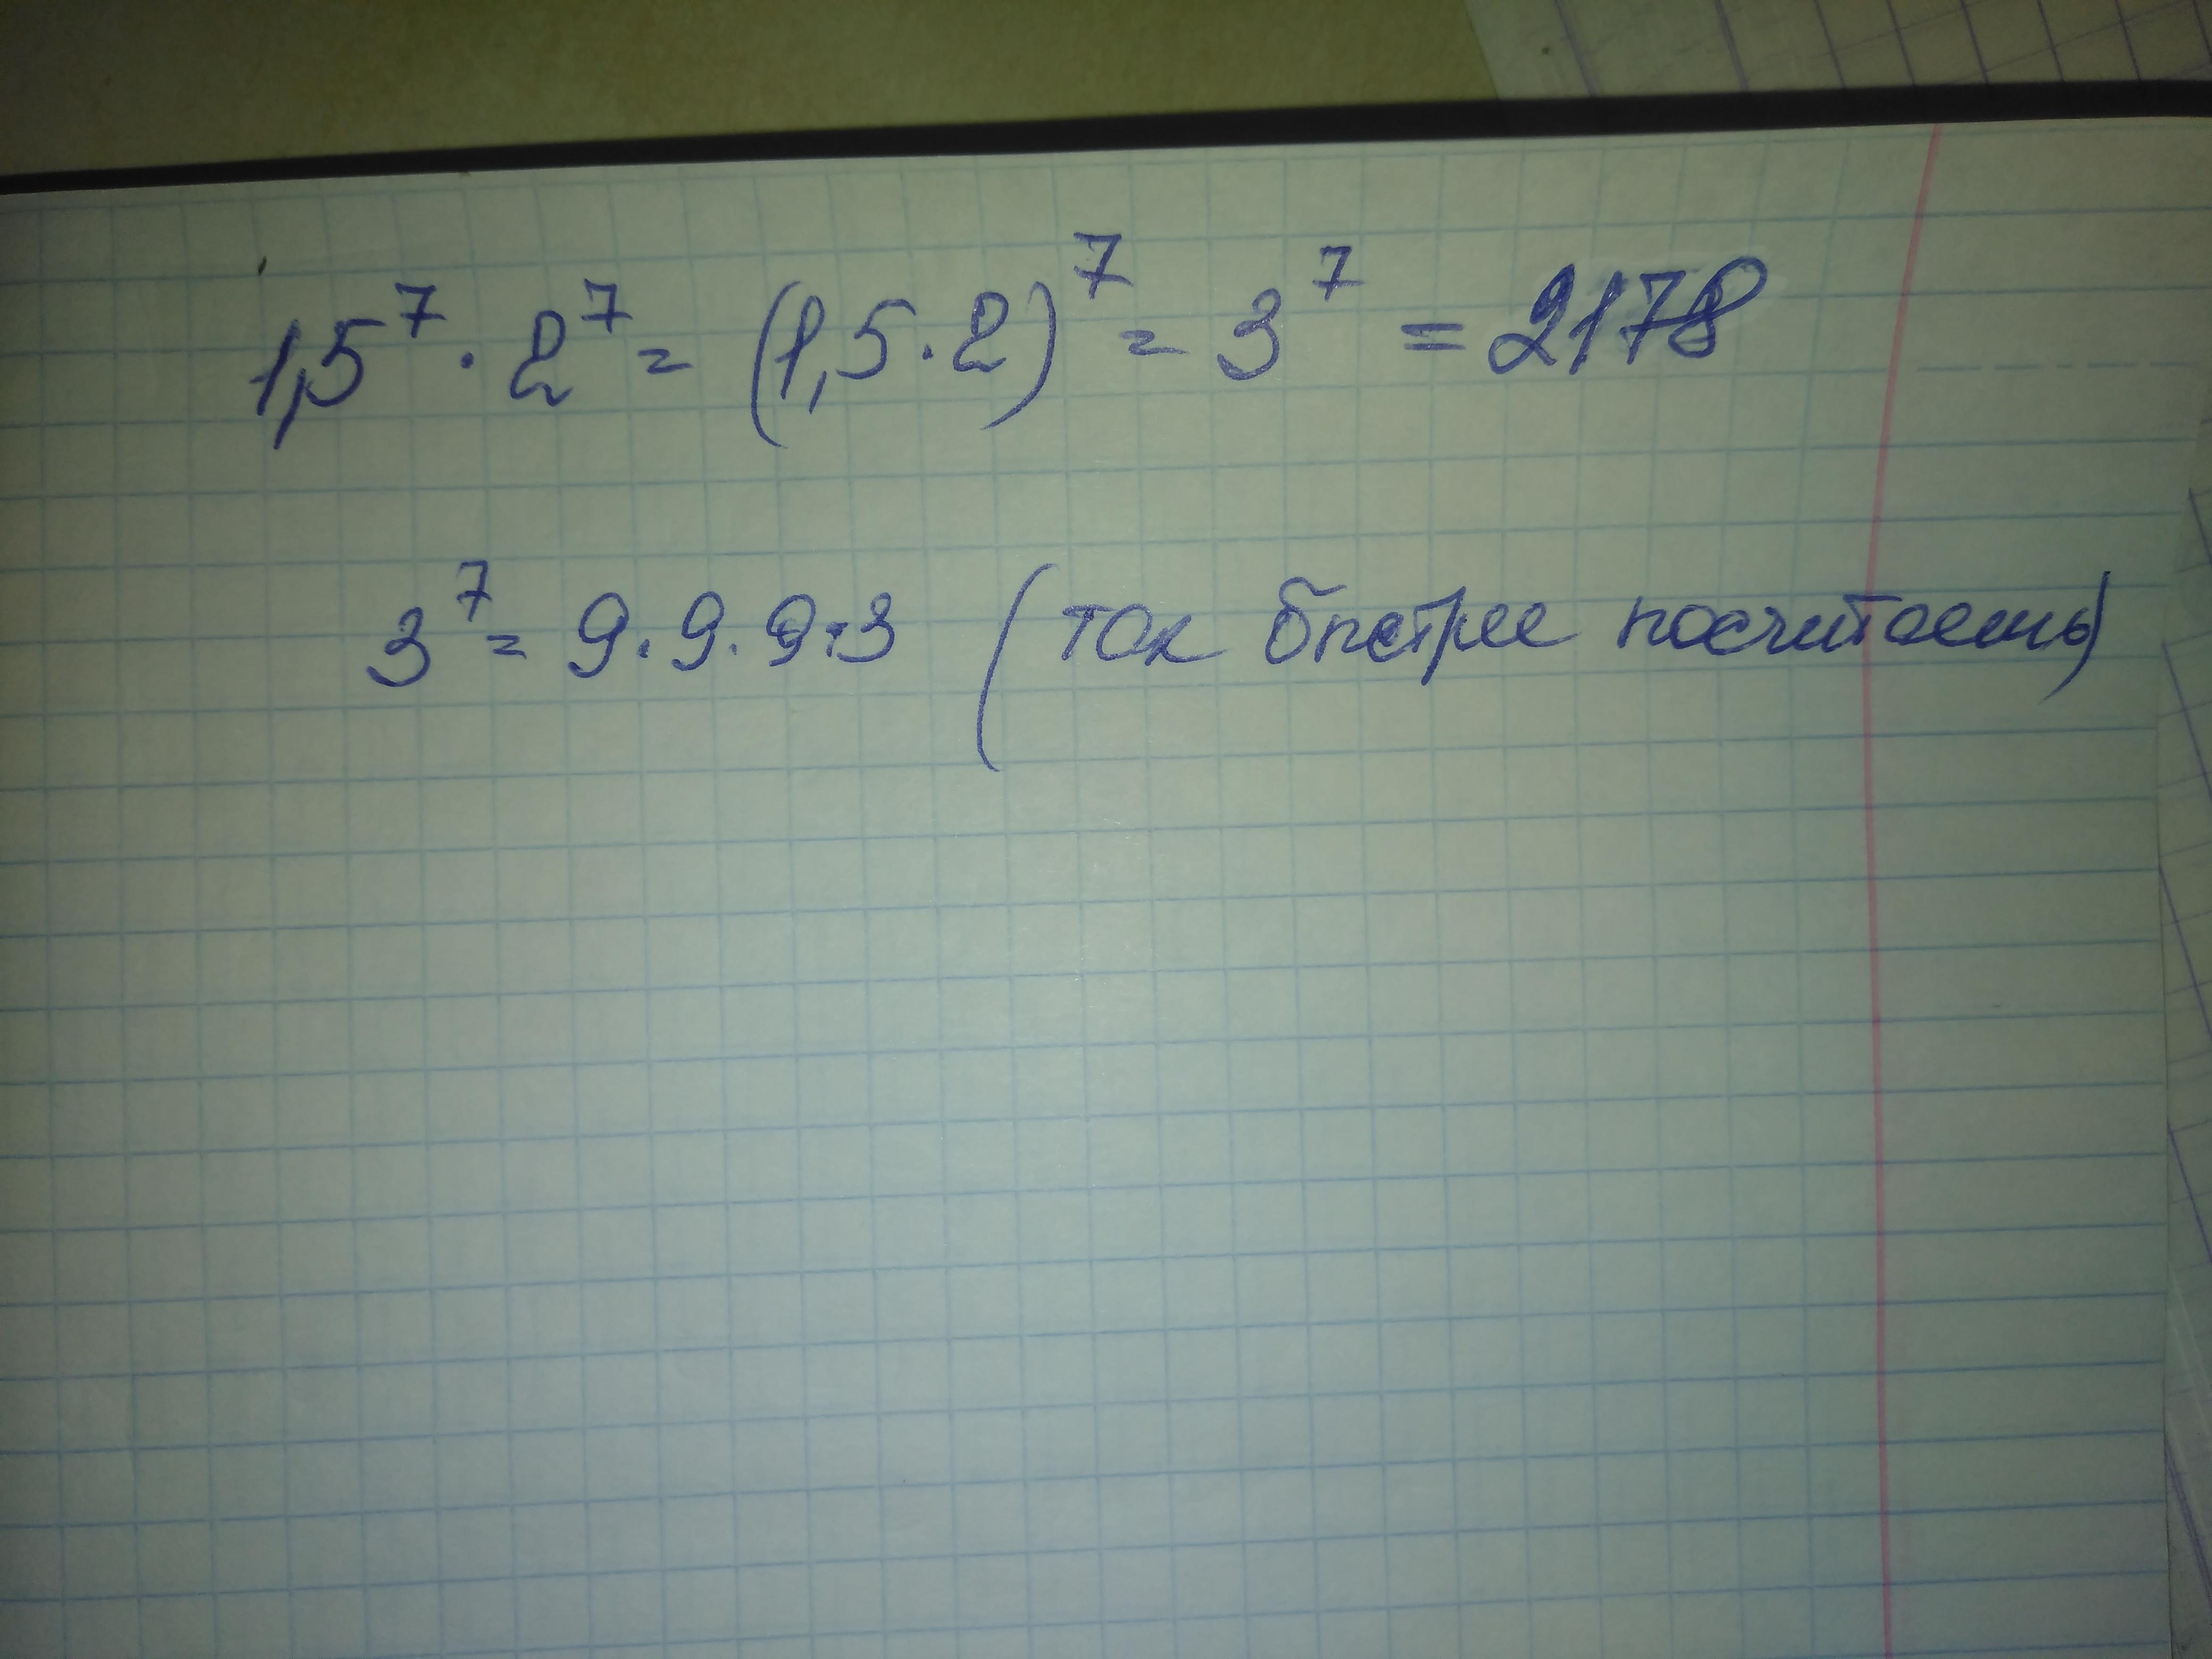 1,5⁷ · 2⁷ = (1,5 · 2)⁷ = 3⁷ = 2178
3⁷ = 9 · 9 · 9 · 3 (так быстрее посчитаешь)